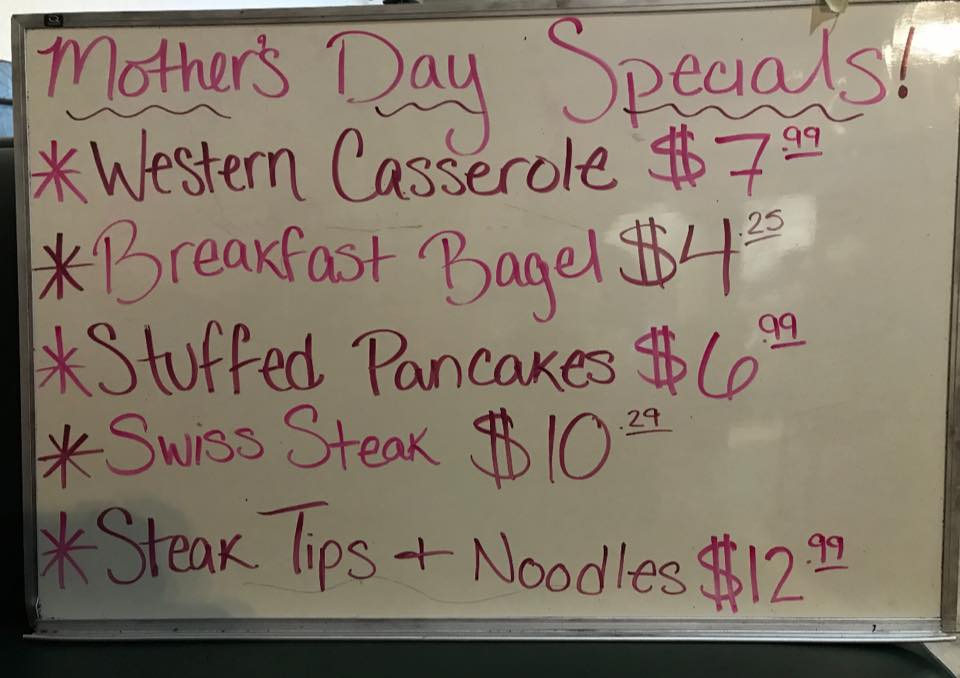 Mother's Day Specials!
* Western Casserole $7.99
* Breakfast Bagel $4.25
* Stuffed Pancakes $6.99
* Swiss Steak $10.29
* Steak Tips + Noodles $12.99